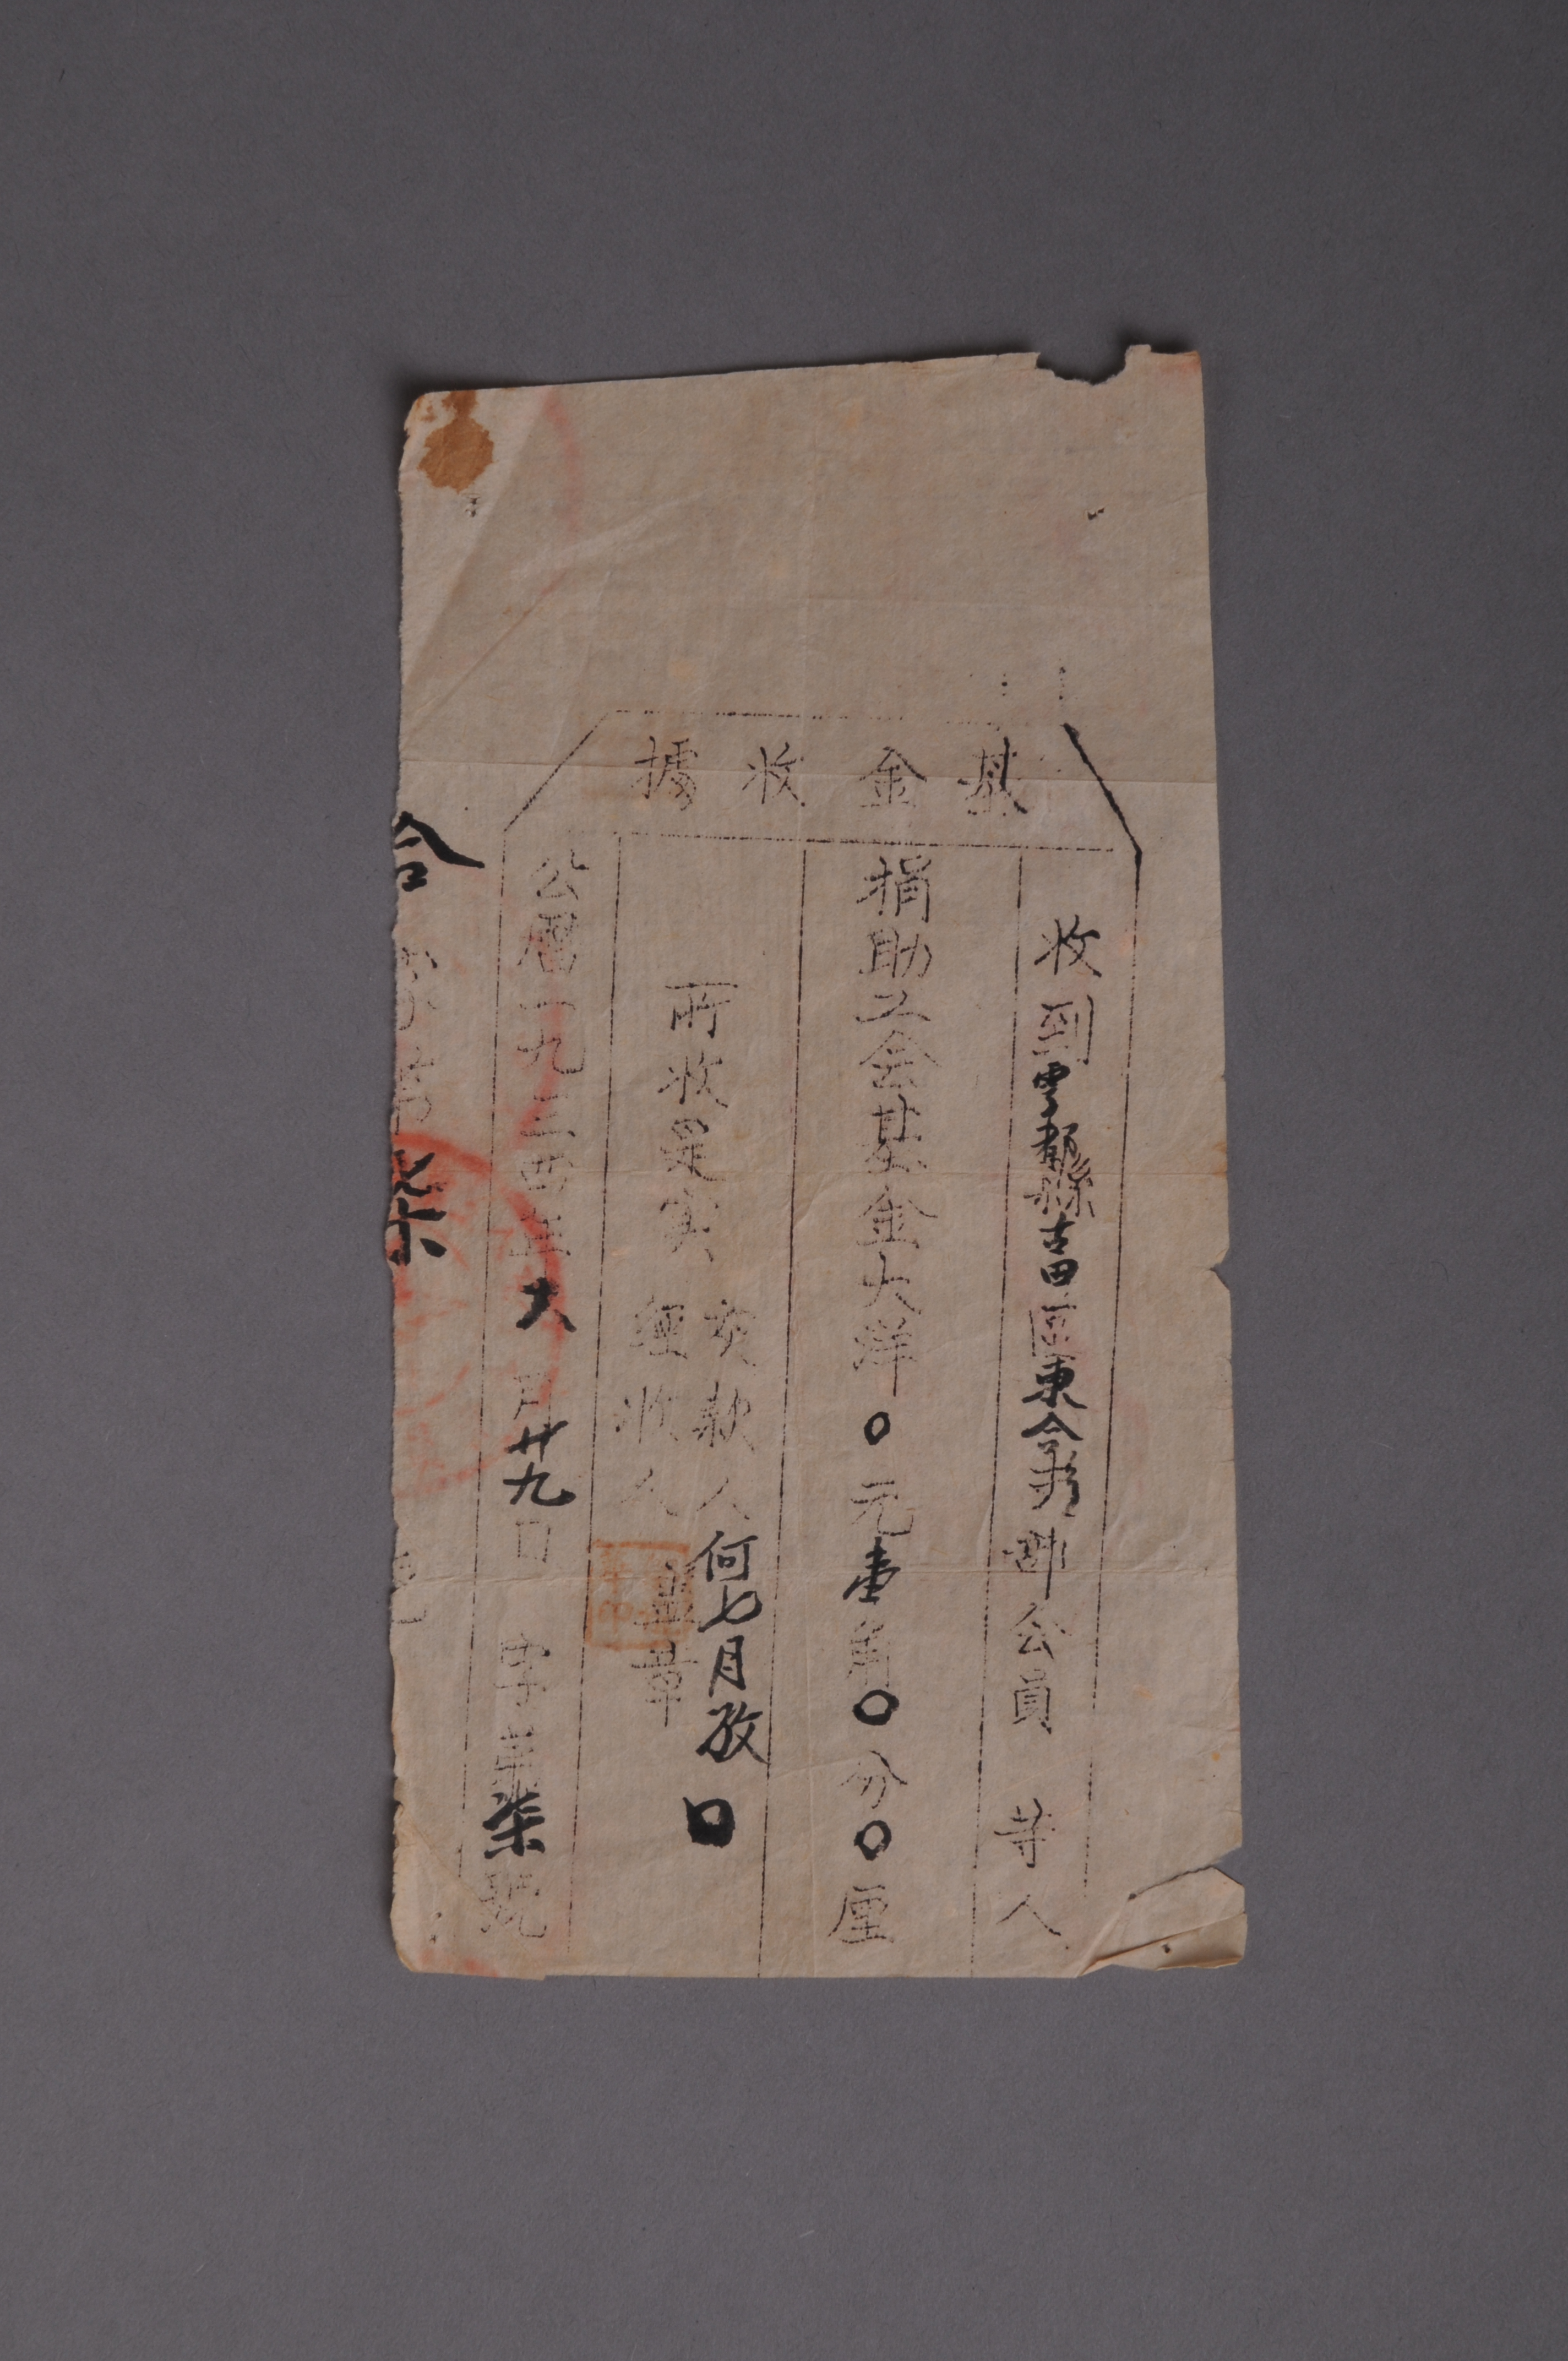 基金收據
收到雩都縣古田區東合鄉部公員 等人
捐助工会基金大洋〇元壹角〇分〇厘
所收是实
交款人何七月孜
經收人 蓋章
公曆一九三四年六月廿九日 字第柒號
合 字第 柒